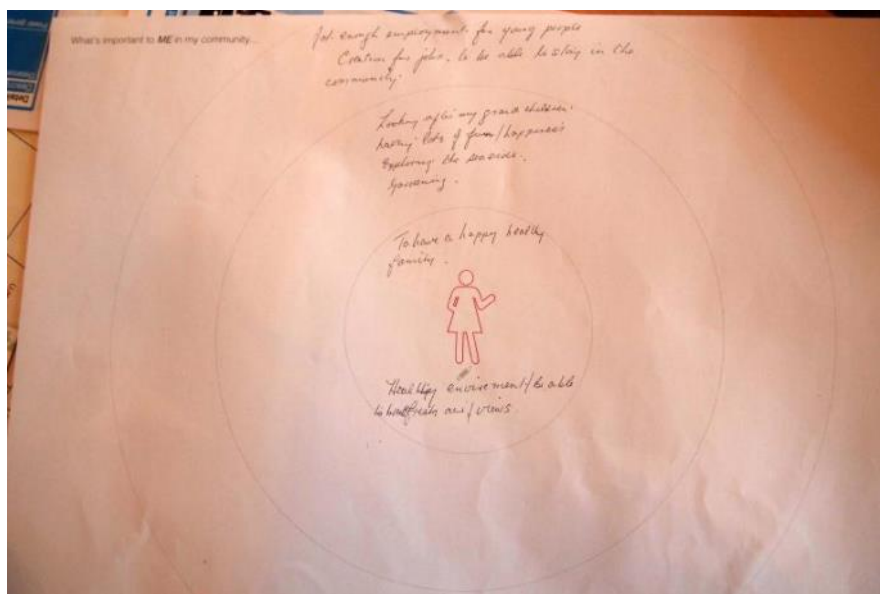 What's important to ME in my community...
Not enough employment for young people
Creation for jobs, to be able to stay in the
community.
Looking after my grand children.
having lots of fun/happiness
Exploring the seaside.
Gardening.
To have a happy healthy
family.
Healthy envirement/be able
to have fresh air/views.
Detai